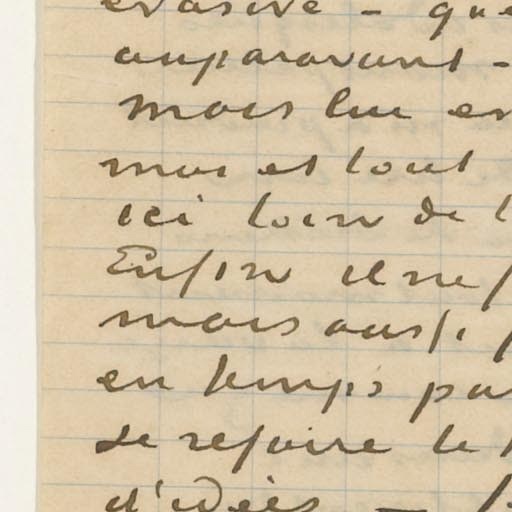 évasive – que
auparavant –
mais lui en
moi et tout
ici loin de l
Enfin il ne f
mais aussi f
en temps pa
se refaire le
d'idées –